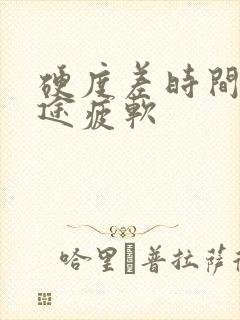 硬度差時間
途疲軟
哈里 普拉薩